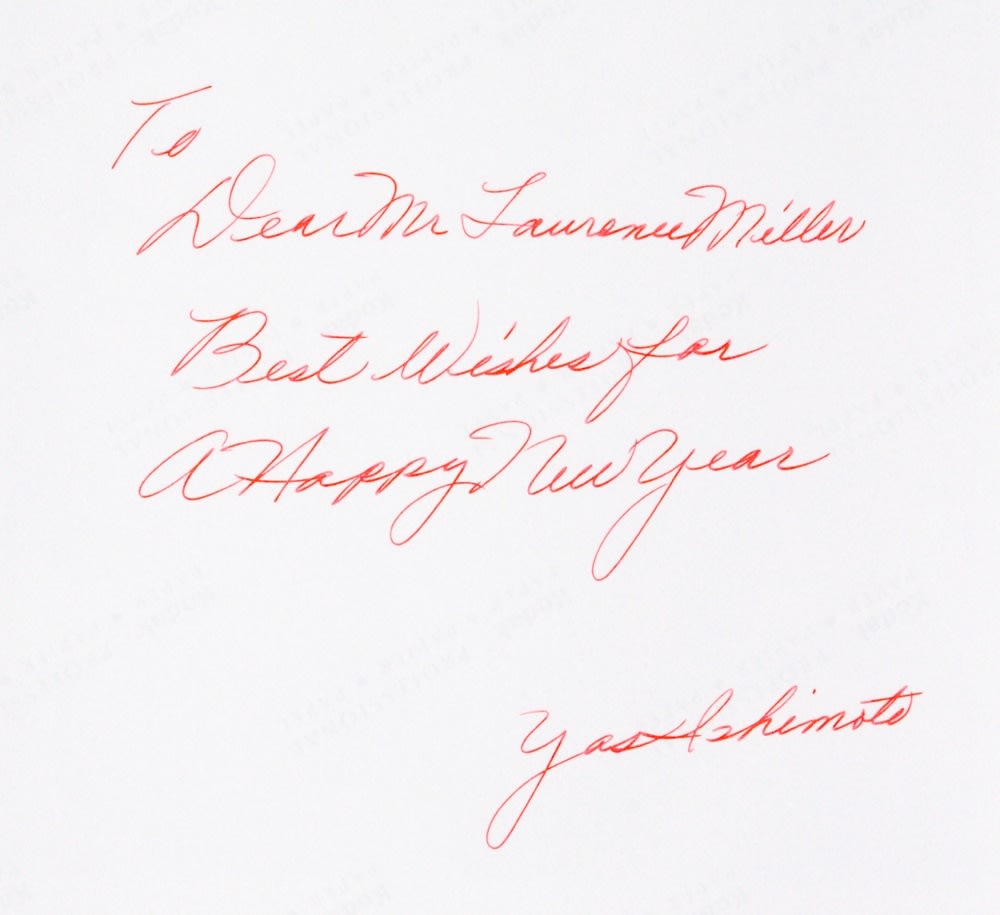 To
Dear Mr Laurence Miller
Best Wishes for
A Happy New Year
Yas Ishimoto